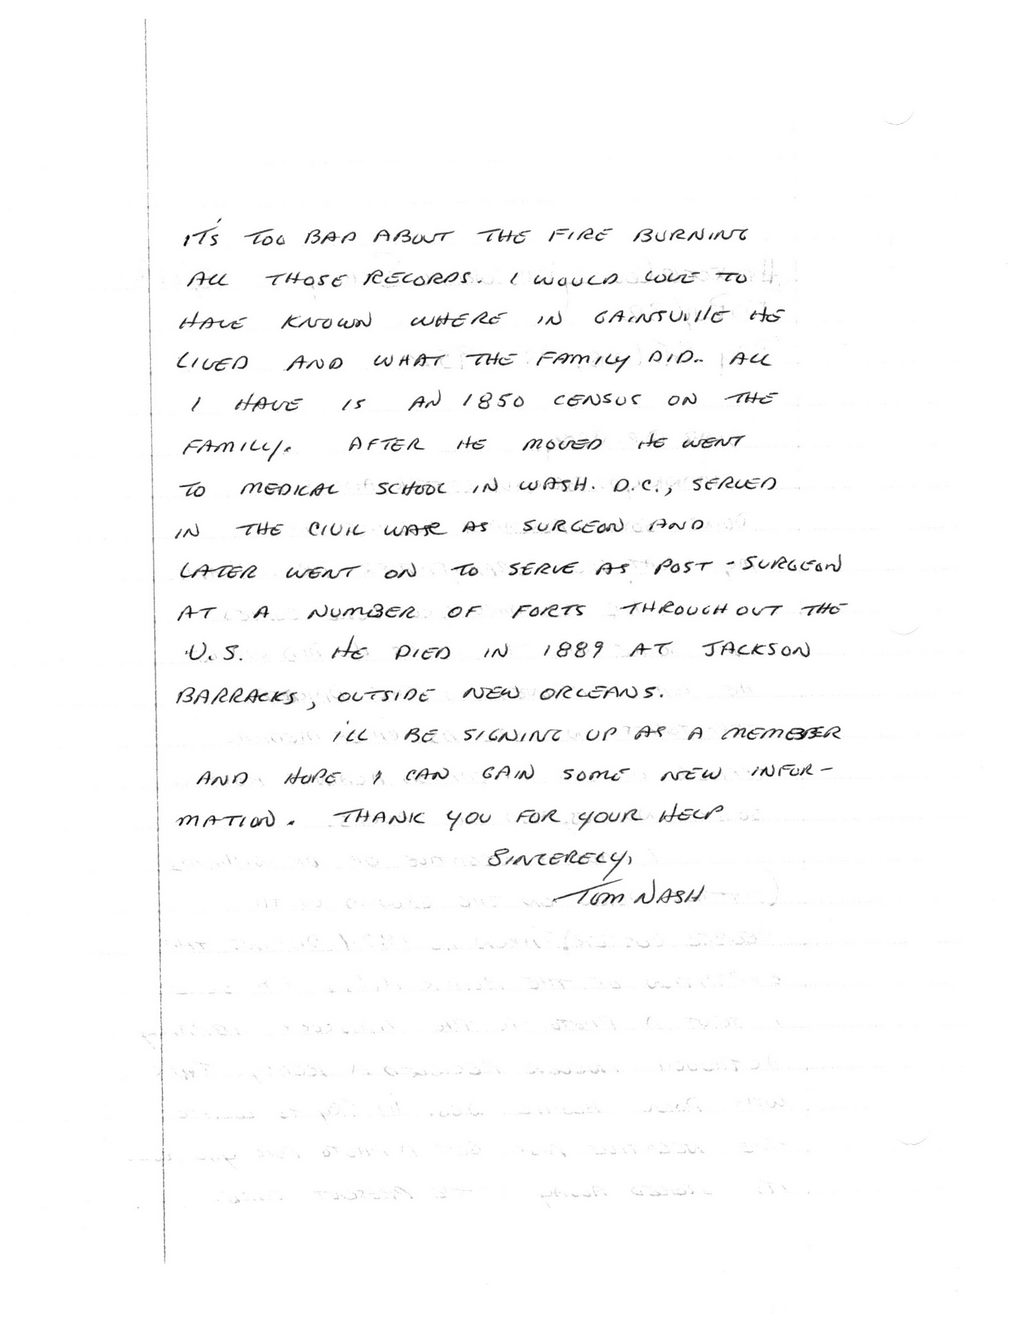 IT'S TOO BAD ABOUT THE FIRE BURNING
ALL THOSE RECORDS. I WOULD LOVE TO
HAVE KNOWN WHERE IN GAINSVILLE HE
LIVED AND WHAT THE FAMILY DID. ALL
I HAVE IS AN 1850 CENSUS ON THE
FAMILY. AFTER HE MOVED HE WENT
TO MEDICAL SCHOOL IN WASH. D.C., SERVED
IN THE CIVIL WAR AS SURGEON AND
LATER WENT ON TO SERVE AS POST-SURGEON
AT A NUMBER OF FORTS THROUGHOUT THE
U.S. HE DIED IN 1889 AT JACKSON
BARRACKS, OUTSIDE NEW ORLEANS.
I'LL BE SIGNING UP AS A MEMBER
AND HOPE I CAN GAIN SOME NEW INFOR-
MATION. THANK YOU FOR YOUR HELP
SINCERELY,
TOM NASH